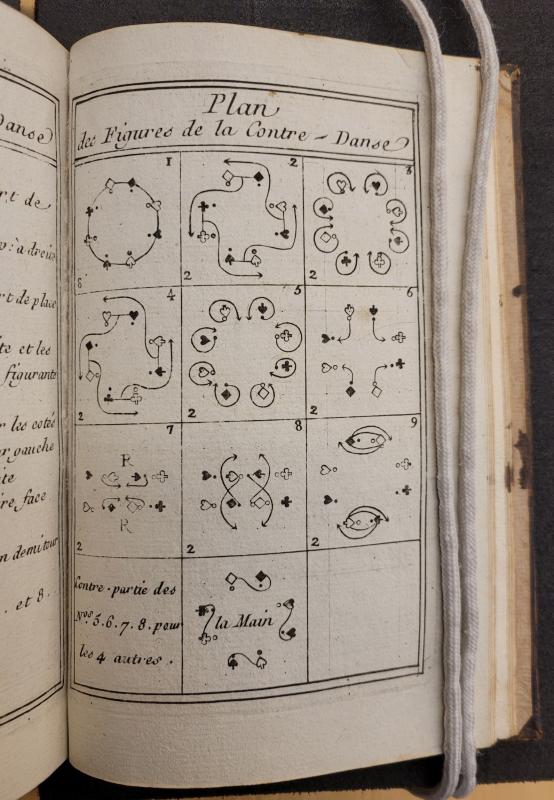 Danse
rt de
rt de place
te et les
figurante
r les cotés
gauche
ite
re face
n demi tour
et 8.
Plan
des Figures de la Contre-Danse
1 2 3
8 2 2
4 5 6
2 2 2
7 8 9
R
R
2 2 2
Contre-partie des
Nos. 5. 6. 7. 8. pour
les 4 autres.
la Main